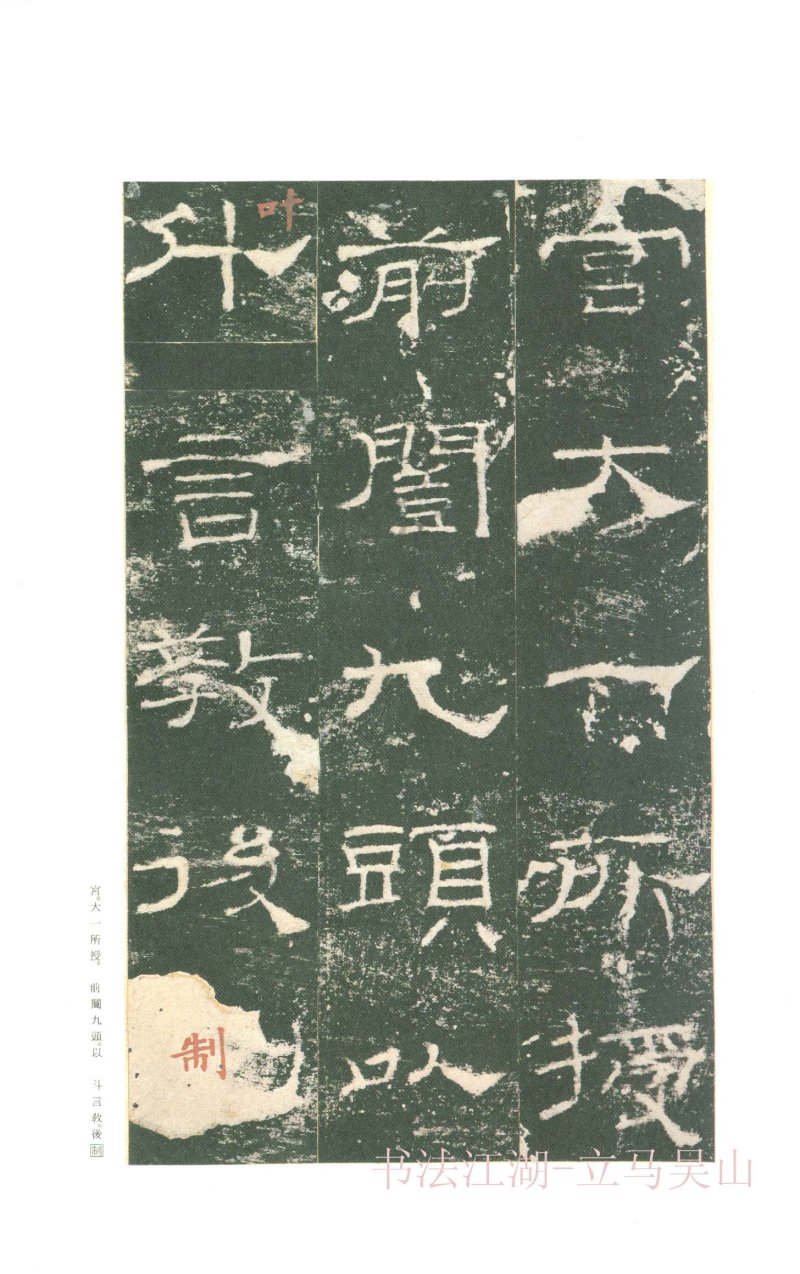 宮大一所授
前闓九頭以
叶
斗言教後制
宮。大一所授。 前闓九頭。以 斗言教。後制
书法江湖-立马吴山